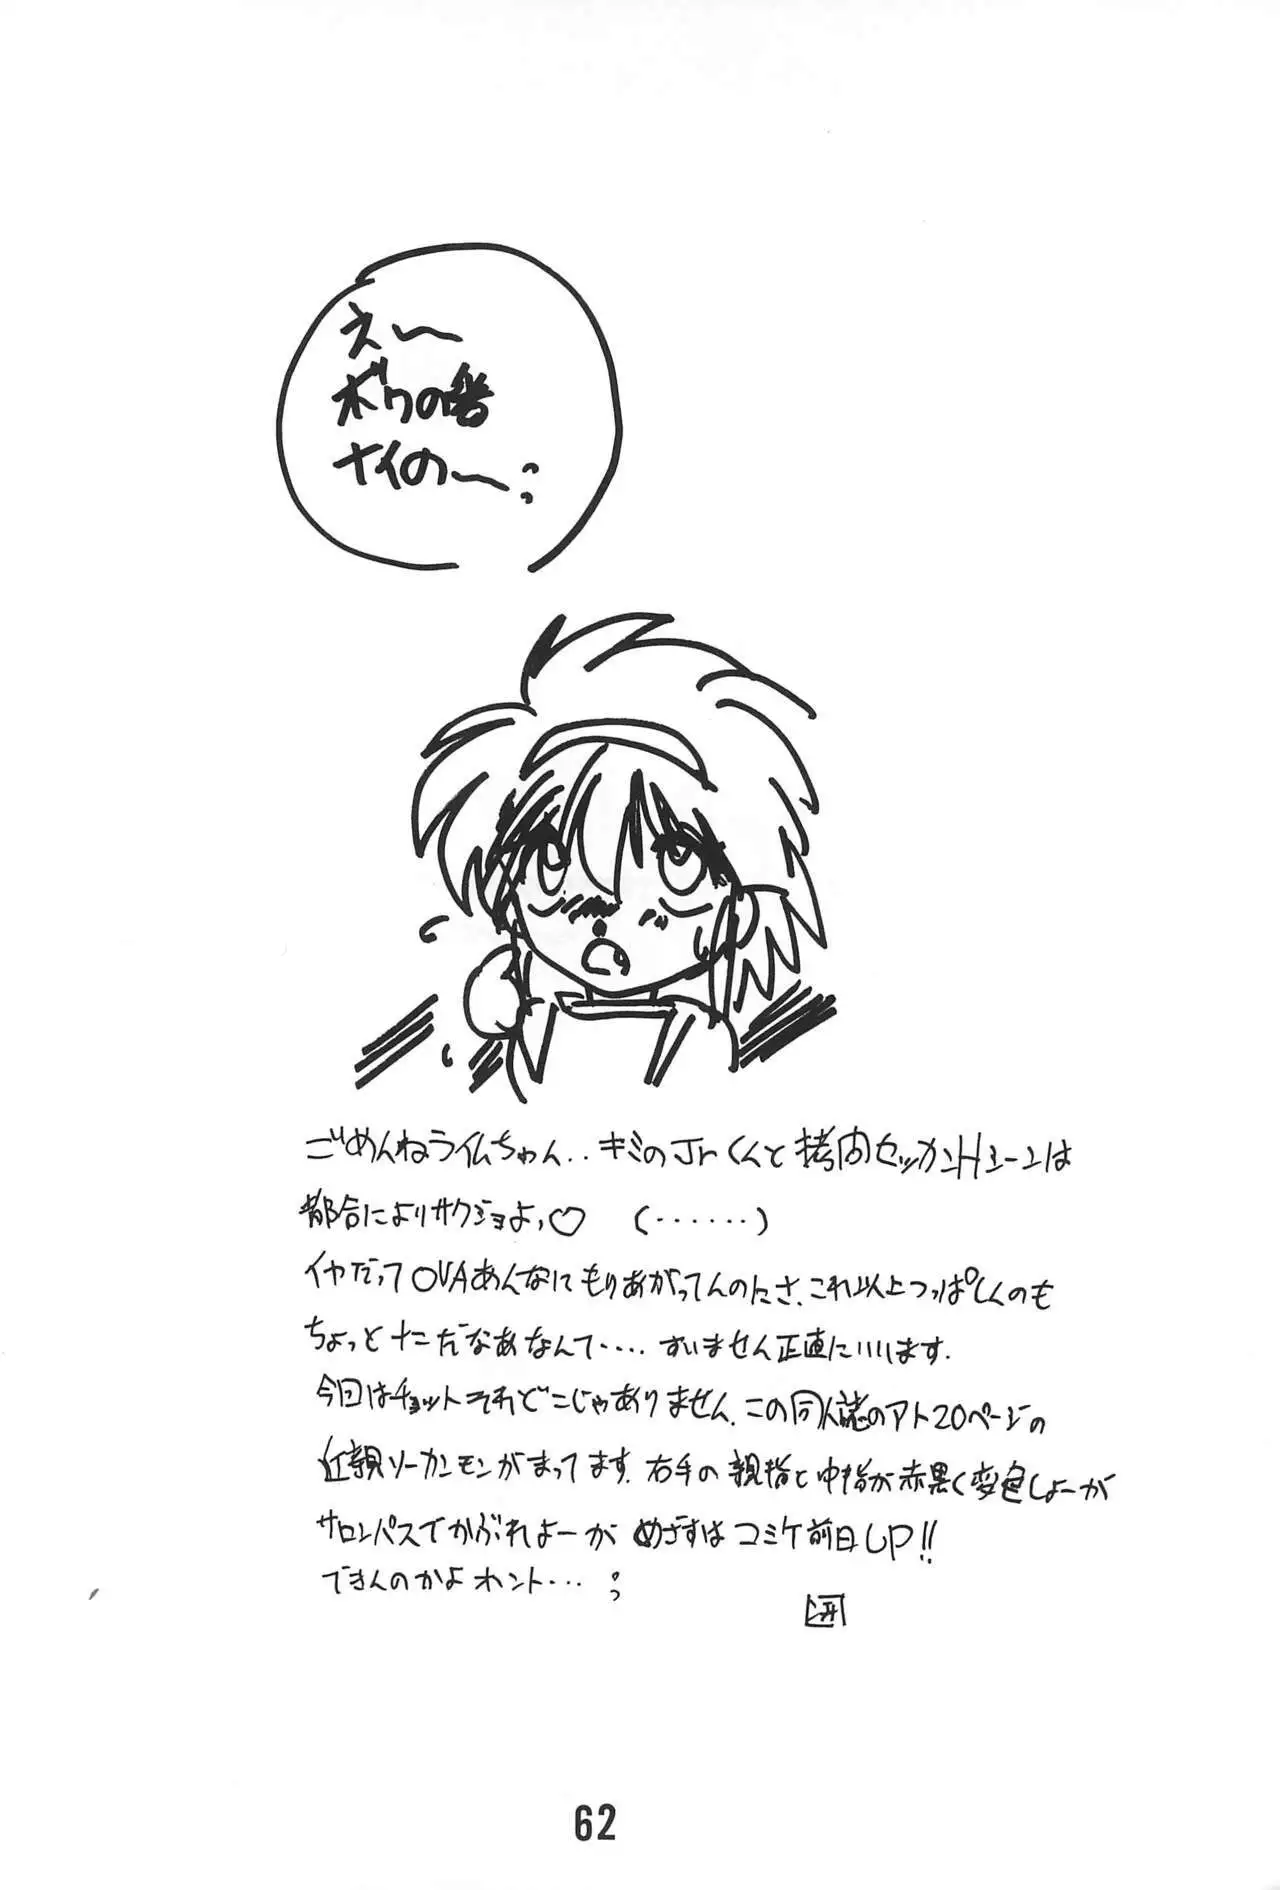 え〜
ボクの番
ナイの〜
ごめんねライムちゃん‥キミのJrくんと拷内セッカンHシーンは
都合によりサクジョよっ♡ (‥‥‥)
イヤだってOVAあんなにもりあがってんのにさ、これ以上つっぱしんのも
ちょっとナニだなあなんて‥‥すいません正直にいいます.
今回はチョットそれどこじゃありません.この同人誌のアト20ページの
近親ソーカンモンがまってます.右手の親指と中指が赤黒く変色しよーが
サロンパスでかぶれよーが めざすはコミケ前日UP!!
できんのかよホント‥‥
62